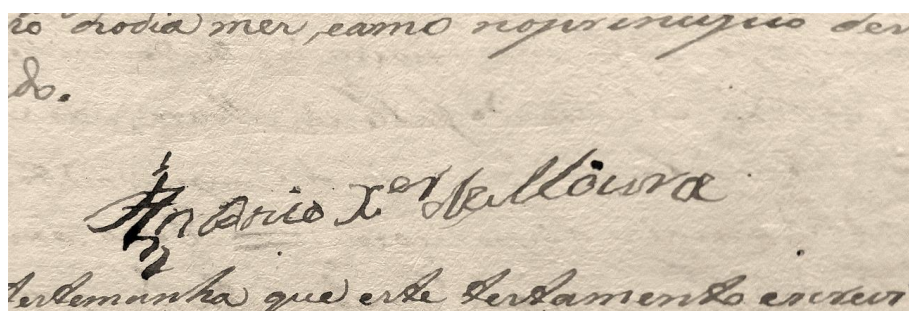 dia mez, eamo noprincipio
do.
Antonio X.er de Moura
testemunha que este testamento